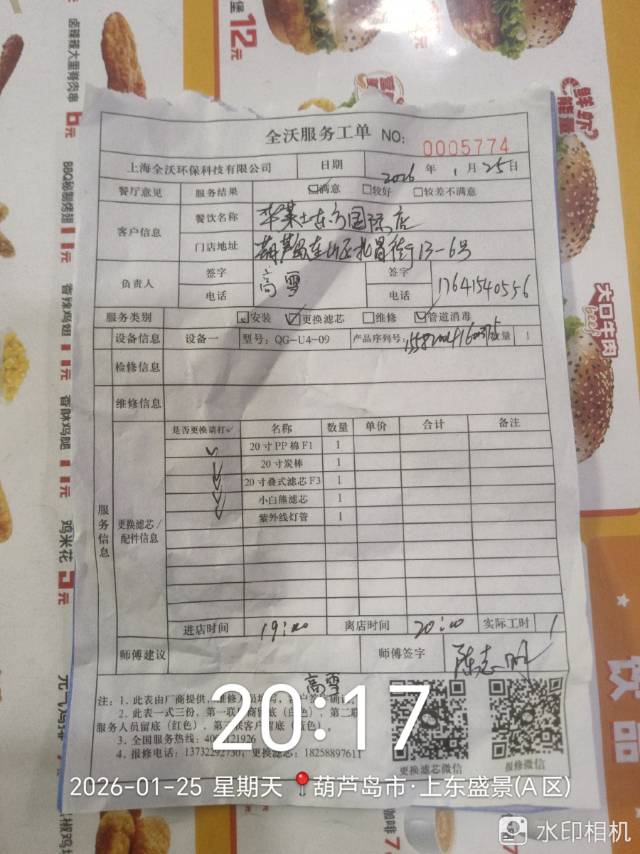 堡12元
卤辣辣大里脊肉串 6元
BBQ秘制烤翅 11元
香辣鸡翅 11元
香酥鸡腿 11元
鸡米花 5元
鲜虾
能量
大口牛肉
beef
饮品
全沃服务工单 NO: 0005774
上海全沃环保科技有限公司 日期 2026年1月25日
餐厅意见 服务结果 满意 较好 较差不满意
客户信息 餐饮名称 华莱士东方国际店
门店地址 葫芦岛连山区北昌街13-6号
负责人 签字 高雪 签字
电话 电话 17641540556
服务类别 安装 更换滤芯 维修 管道消毒
设备信息 设备一 型号:QG-U4-09 产品序列号: 数量 1
检修信息
维修信息
服务信息 更换滤芯/配件信息
是否更换请打√ 名称 数量 单价 合计 备注
√ 20寸PP棉F1 1
20寸炭棒 1
20寸叠式滤芯F3 1
小白熊滤芯 1
紫外线灯管 1
进店时间 19:00 离店时间 20:00 实际工时 1
师傅建议 师傅签字
高雪
注:1.此表由厂商提供,维修
2.此表一式三份,第一联 第二联
服务人员留底(红色),第 联客户留底(蓝色)。
3.全国服务热线:
4.报修电话:13732292730,更换滤芯:18258897611
更换滤芯微信 报修微信
20:17
2026-01-25 星期天 葫芦岛市·上东盛景(A区)
水印相机